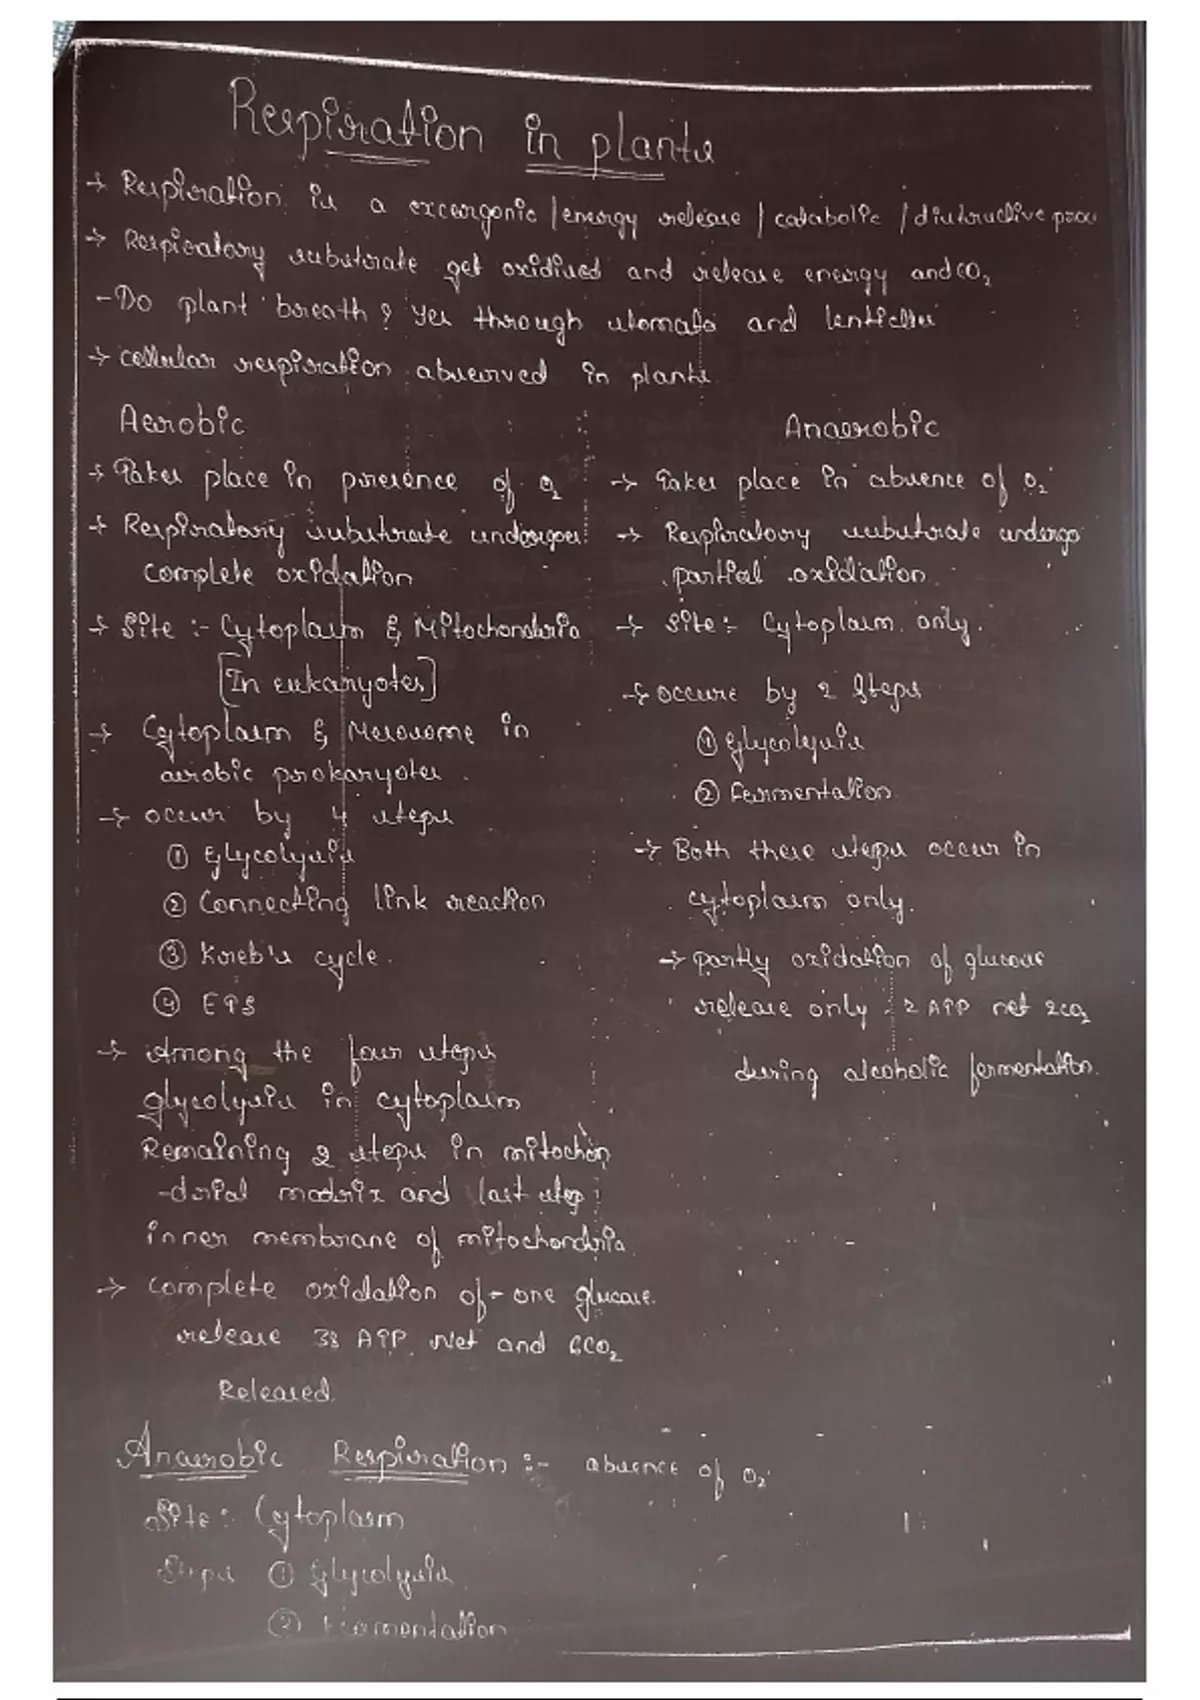 Respiration in plants
→ Respiration is a excergonic / energy release / catabolic / distructive proce
→ Respiratory substrate get oxidised and release energy and CO₂
- Do plant breath ? Yes through stomata and lenticells
→ cellular respiration abserved in plants
Aerobic
→ Takes place in presence of O₂
→ Respiratory substrate undergoes
complete oxidation
→ Site :- Cytoplasm & Mitochondria
[In eukaryotes]
→ Cytoplasm & Mesosome in
aerobic prokaryotes
→ occur by 4 steps
① Glycolysis
② Connecting link reaction
③ Kreb's cycle.
④ ETS
→ Among the four steps
glycolysis in cytoplasm
Remaining 2 steps in mitochon
-drial matrix and last step
inner membrane of mitochondria
→ Complete oxidation of - one glucose.
release 38 ATP Net and 6CO₂
Released.
Anaerobic
→ Takes place in absence of O₂
→ Respiratory substrate undergo
partial oxidation
→ Site:- Cytoplasm only.
→ occure by 2 Steps
① Glycolysis
② Fermentation
→ Both these steps occur in
cytoplasm only.
→ partly oxidation of glucose
release only 2 ATP net 2CO₂
during alcoholic fermentation.
Anaerobic Respiration :- absence of O₂
Site : Cytoplasm
Steps ① Glycolysis
② Fermentation